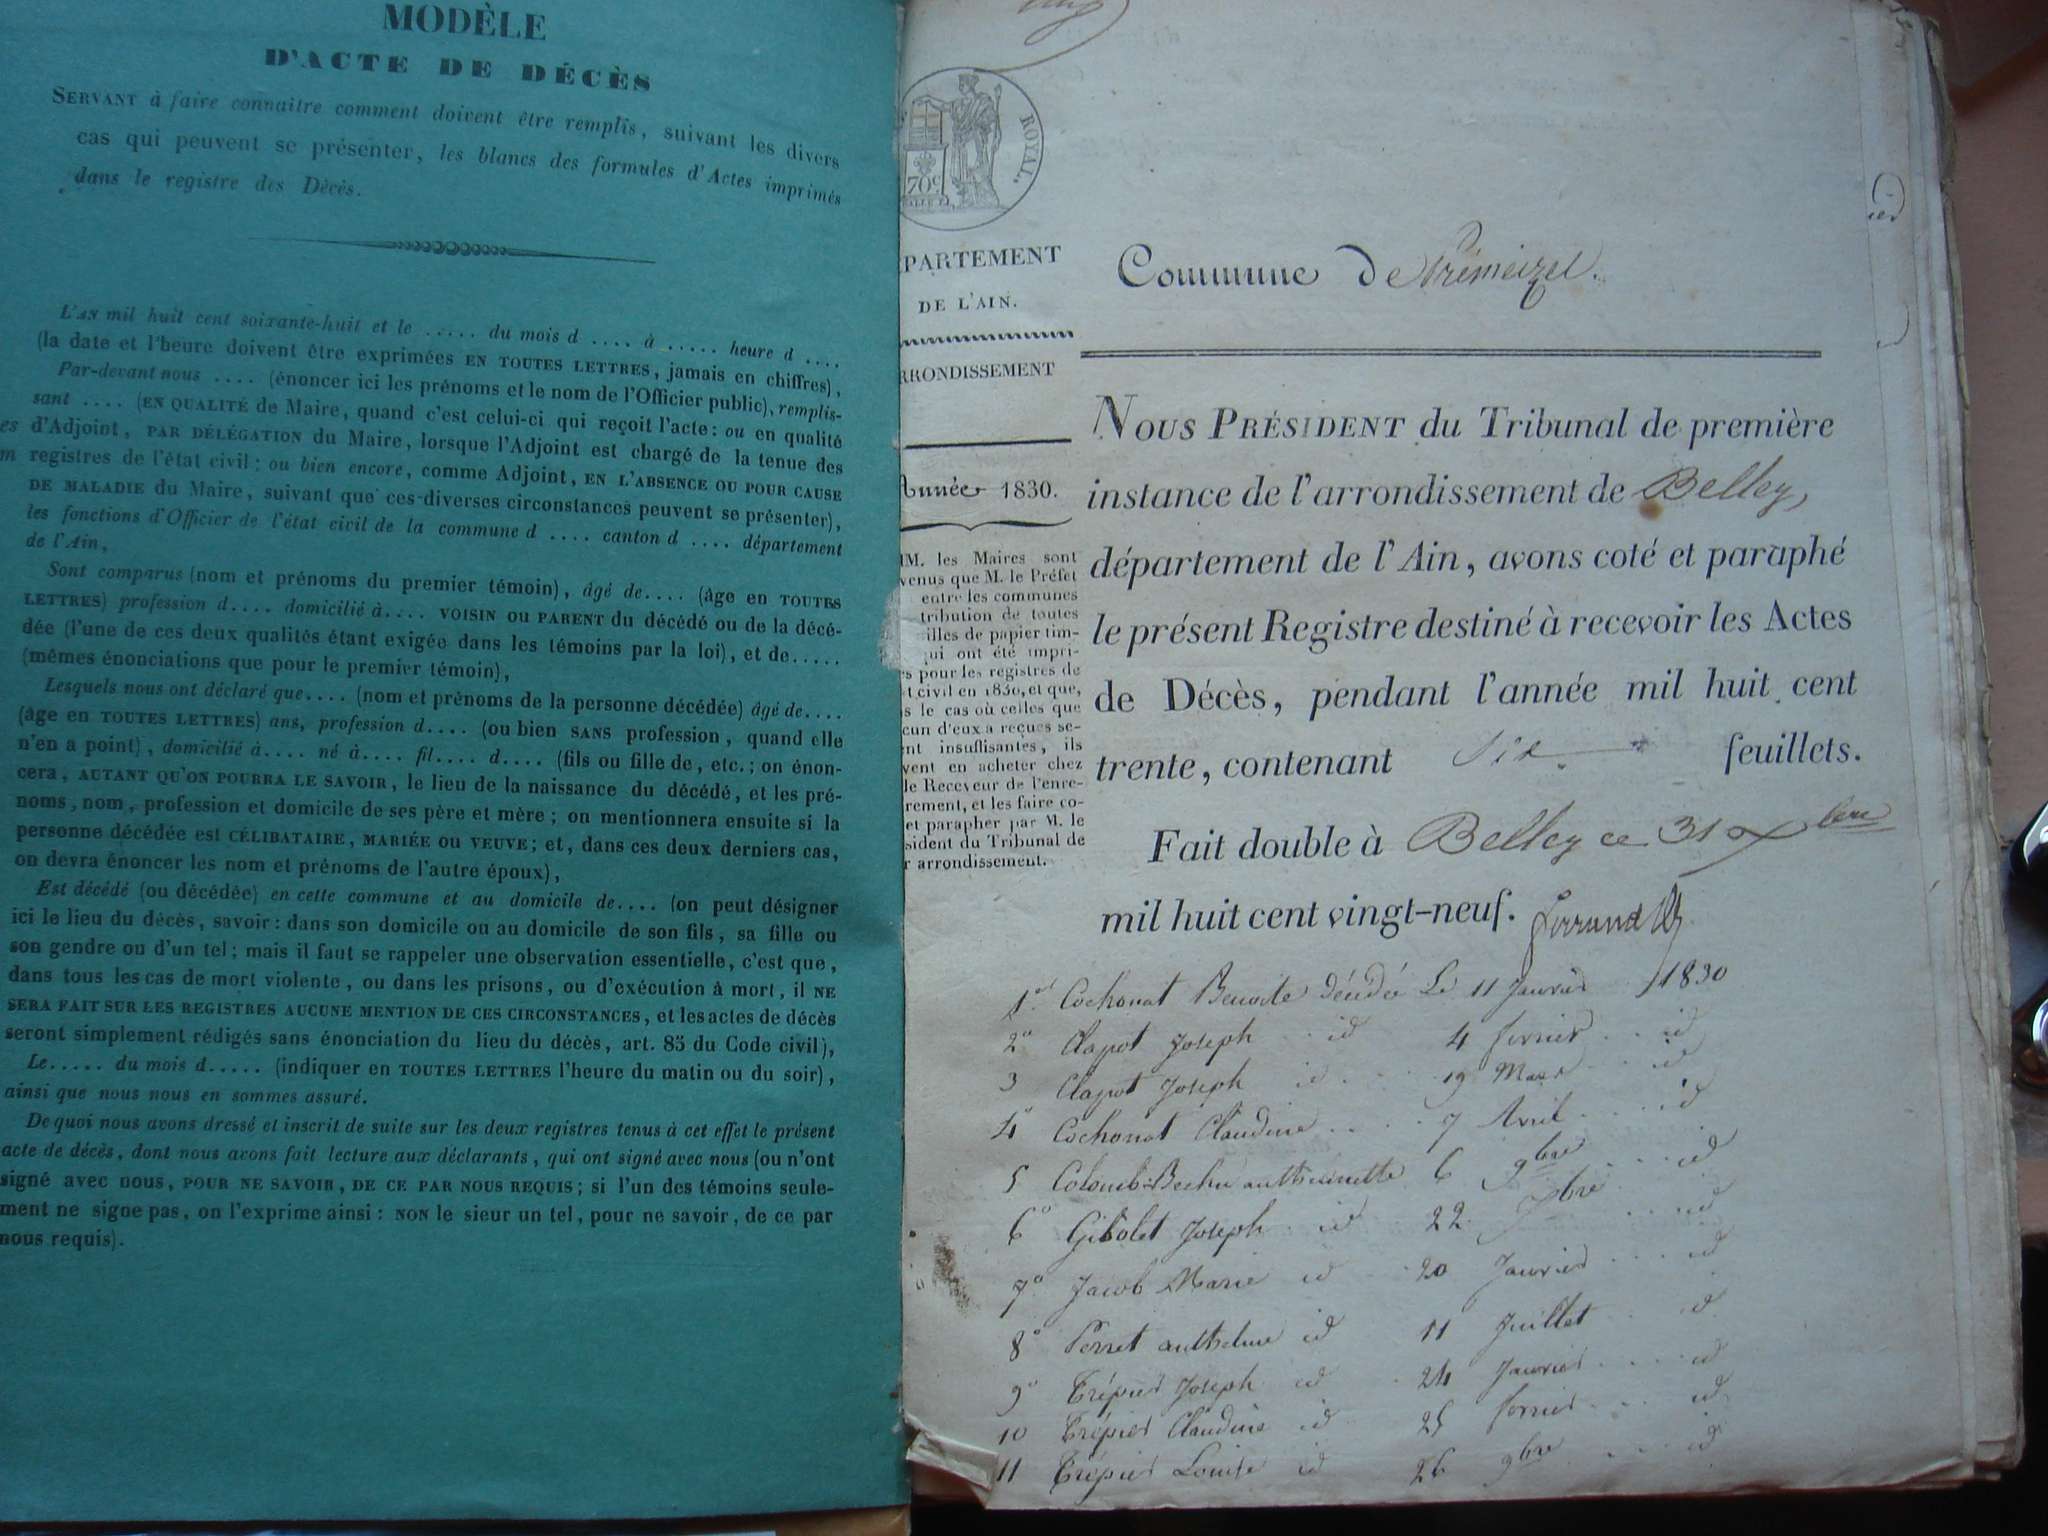 MODÈLE
D'ACTE DE DÉCÈS
SERVANT à faire connaitre comment doivent être remplis, suivant les divers
cas qui peuvent se présenter, les blancs des formules d'Actes imprimés
dans le registre des Décès.
L'AN mil huit cent soixante-huit et le ..... du mois d .... à ..... heure d ....
(la date et l'heure doivent être exprimées EN TOUTES LETTRES, jamais en chiffres),
Par-devant nous .... (énoncer ici les prénoms et le nom de l'Officier public), remplis-
sant .... (EN QUALITÉ de Maire, quand c'est celui-ci qui reçoit l'acte: ou en qualité
d'Adjoint, PAR DÉLÉGATION du Maire, lorsque l'Adjoint est chargé de la tenue des
registres de l'état civil; ou bien encore, comme Adjoint, EN L'ABSENCE OU POUR CAUSE
DE MALADIE du Maire, suivant que ces diverses circonstances peuvent se présenter),
les fonctions d'Officier de l'état civil de la commune d .... canton d .... département
de l'Ain,
Sont comparus (nom et prénoms du premier témoin), âgé de.... (âge en TOUTES
LETTRES) profession d.... domicilié à.... VOISIN OU PARENT du décédé ou de la décé-
dée (l'une de ces deux qualités étant exigée dans les témoins par la loi), et de.....
(mêmes énonciations que pour le premier témoin),
Lesquels nous ont déclaré que.... (nom et prénoms de la personne décédée) âgé de....
(âge en TOUTES LETTRES) ans, profession d.... (ou bien SANS profession, quand elle
n'en a point), domicilié à.... né à.... fil.... d.... (fils ou fille de, etc.; on énon-
cera, AUTANT QU'ON POURRA LE SAVOIR, le lieu de la naissance du décédé, et les pré-
noms, nom, profession et domicile de ses père et mère; on mentionnera ensuite si la
personne décédée est CÉLIBATAIRE, MARIÉE OU VEUVE; et, dans ces deux derniers cas,
on devra énoncer les nom et prénoms de l'autre époux),
Est décédé (ou décédée) en cette commune et au domicile de.... (on peut désigner
ici le lieu du décès, savoir: dans son domicile ou au domicile de son fils, sa fille ou
son gendre ou d'un tel; mais il faut se rappeler une observation essentielle, c'est que,
dans tous les cas de mort violente, ou dans les prisons, ou d'exécution à mort, il NE
SERA FAIT SUR LES REGISTRES AUCUNE MENTION DE CES CIRCONSTANCES, et les actes de décès
seront simplement rédigés sans énonciation du lieu du décès, art. 85 du Code civil),
Le..... du mois d..... (indiquer en TOUTES LETTRES l'heure du matin ou du soir),
ainsi que nous nous en sommes assuré.
De quoi nous avons dressé et inscrit de suite sur les deux registres tenus à cet effet le présent
acte de décès, dont nous avons fait lecture aux déclarants, qui ont signé avec nous (ou n'ont
signé avec nous, POUR NE SAVOIR, DE CE PAR NOUS REQUIS; si l'un des témoins seule-
ment ne signe pas, on l'exprime ainsi: NON le sieur un tel, pour ne savoir, de ce par
nous requis).
ROYAL.
70c
PARTEMENT
DE L'AIN.
RRONDISSEMENT
Année 1830.
MM. les Maires sont
venus que M. le Préfet
entre les communes
tribution de toutes
illes de papier tim-
qui ont été impri-
s pour les registres de
t civil en 1830, et que,
s le cas où celles que
cun d'eux a reçues se-
nt insuffisantes, ils
vent en acheter chez
le Receveur de l'enre-
rement, et les faire co-
et parapher par M. le
sident du Tribunal de
r arrondissement.
Commune de
NOUS PRÉSIDENT du Tribunal de première
instance de l'arrondissement de Belley,
département de l'Ain, avons coté et paraphé
le présent Registre destiné à recevoir les Actes
de Décès, pendant l'année mil huit cent
trente, contenant six feuillets.
Fait double à Belley ce 31 Xbre
mil huit cent vingt-neuf.
1er Cochonat Benoite décédée Le 11 Janvier 1830
2o Clapot Joseph .. id 4 fevrier ... id
3 Clapot Joseph id .... 19 Mars ... id
4o Cochonat Claudine .... 7 Avril .... id
5 Colomb 6 9bre .... id
6o Gibolet Joseph . id . 22 7bre .... id
7o Jacob Marie id .. 20 Janvier .... id
8o Perret anthelme id 11 Juillet .. id
9o Trépier Joseph id . 24 Janvier .... id
10 Trépier Claudine id 25 fevrier .... id
11 Trépier Louise id 26 9bre .... id